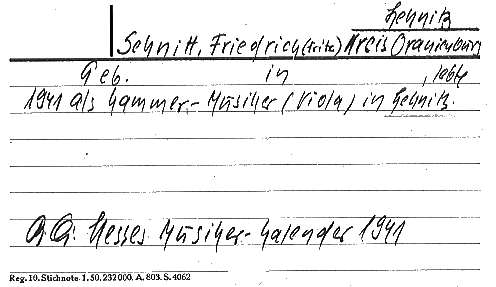 Lehnitz
Schnitt, Friedrich (Fritz) Kreis Oranienburg
Geb. in , lebte
1941 als Kammer-Musiker (Viola) in Lehnitz.
Q.Q: Hesses Musiker-Kalender 1941
Reg. 10. Stichnote. 1. 50. 232000. A. 803. S. 4062